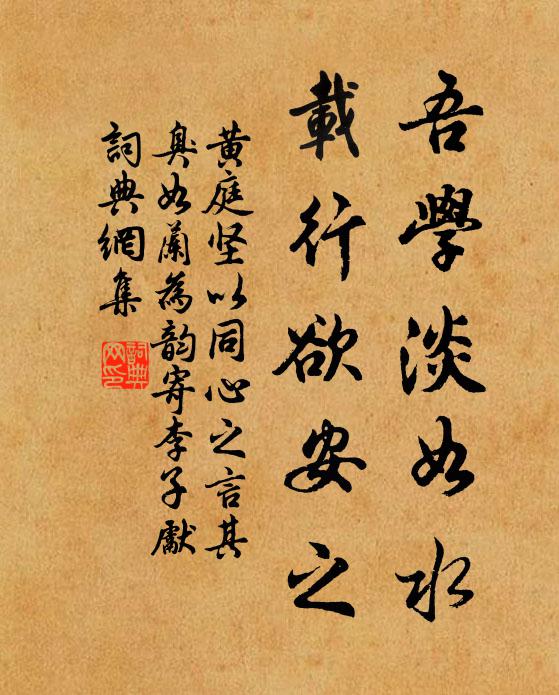 吾學淡如水
載行欲安之
黄庭坚以同心之言其
臭如蘭為韵寄李子獻
詞典網集
詞典網印